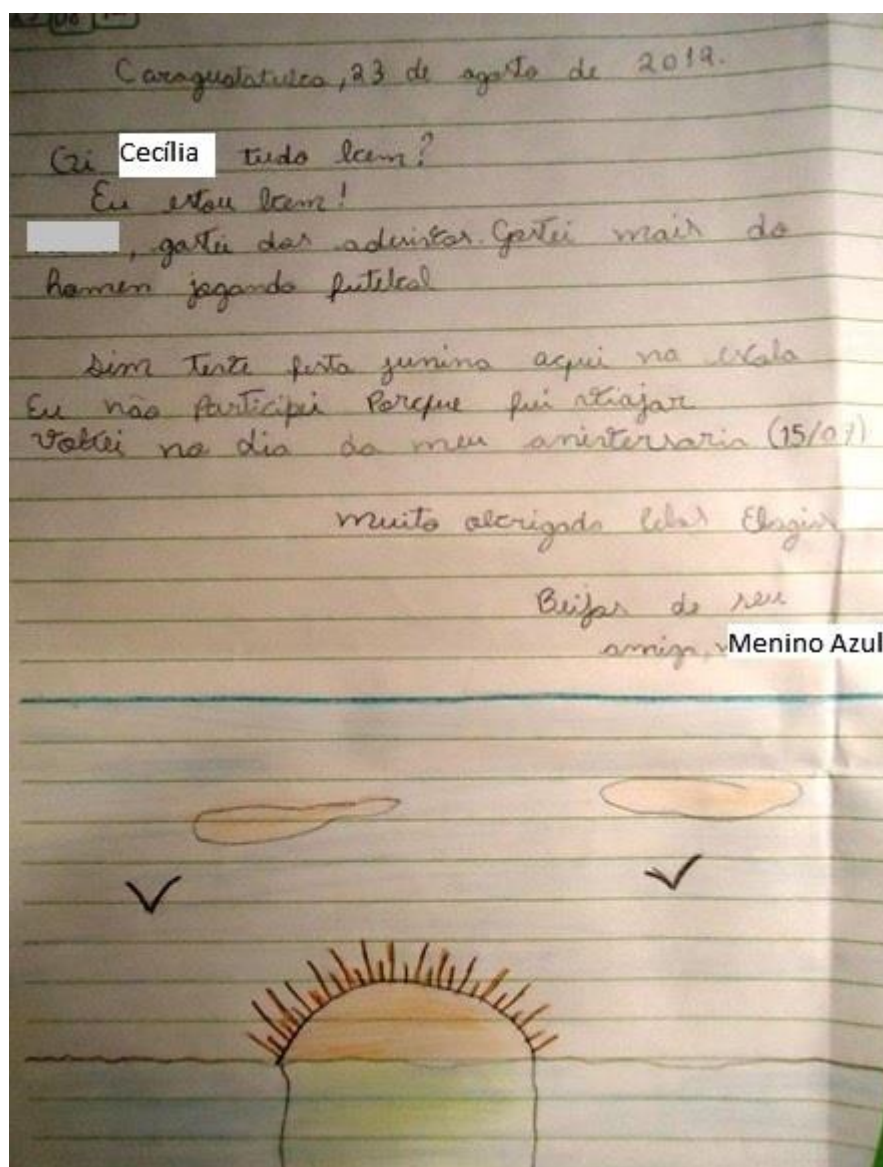 Caraguatatuba, 23 de agosto de 2019.
Oi Cecília tudo bem?
Eu estou bem!
, gostei dos adesivos. Gostei mais do
homen jogando futebol
Sim teve festa junina aqui na escola
Eu não Participei Porque fui viajar
Voltei no dia do meu aniversario (15/07)
muito obrigado pelos Elogios
Beijos de seu
amigo, Menino Azul